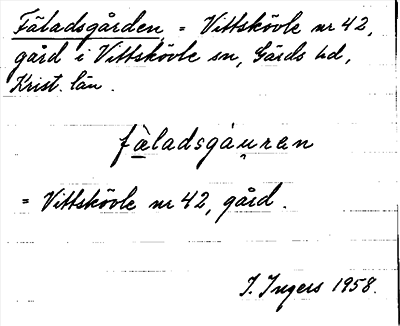 Fäladsgården = Vittskövle nr 42,
gård i Vittskövle sn, Gärds hd,
Krist. län.
fàladsgáu̯ran
= Vittskövle nr 42, gård.
I. Ingers 1958.